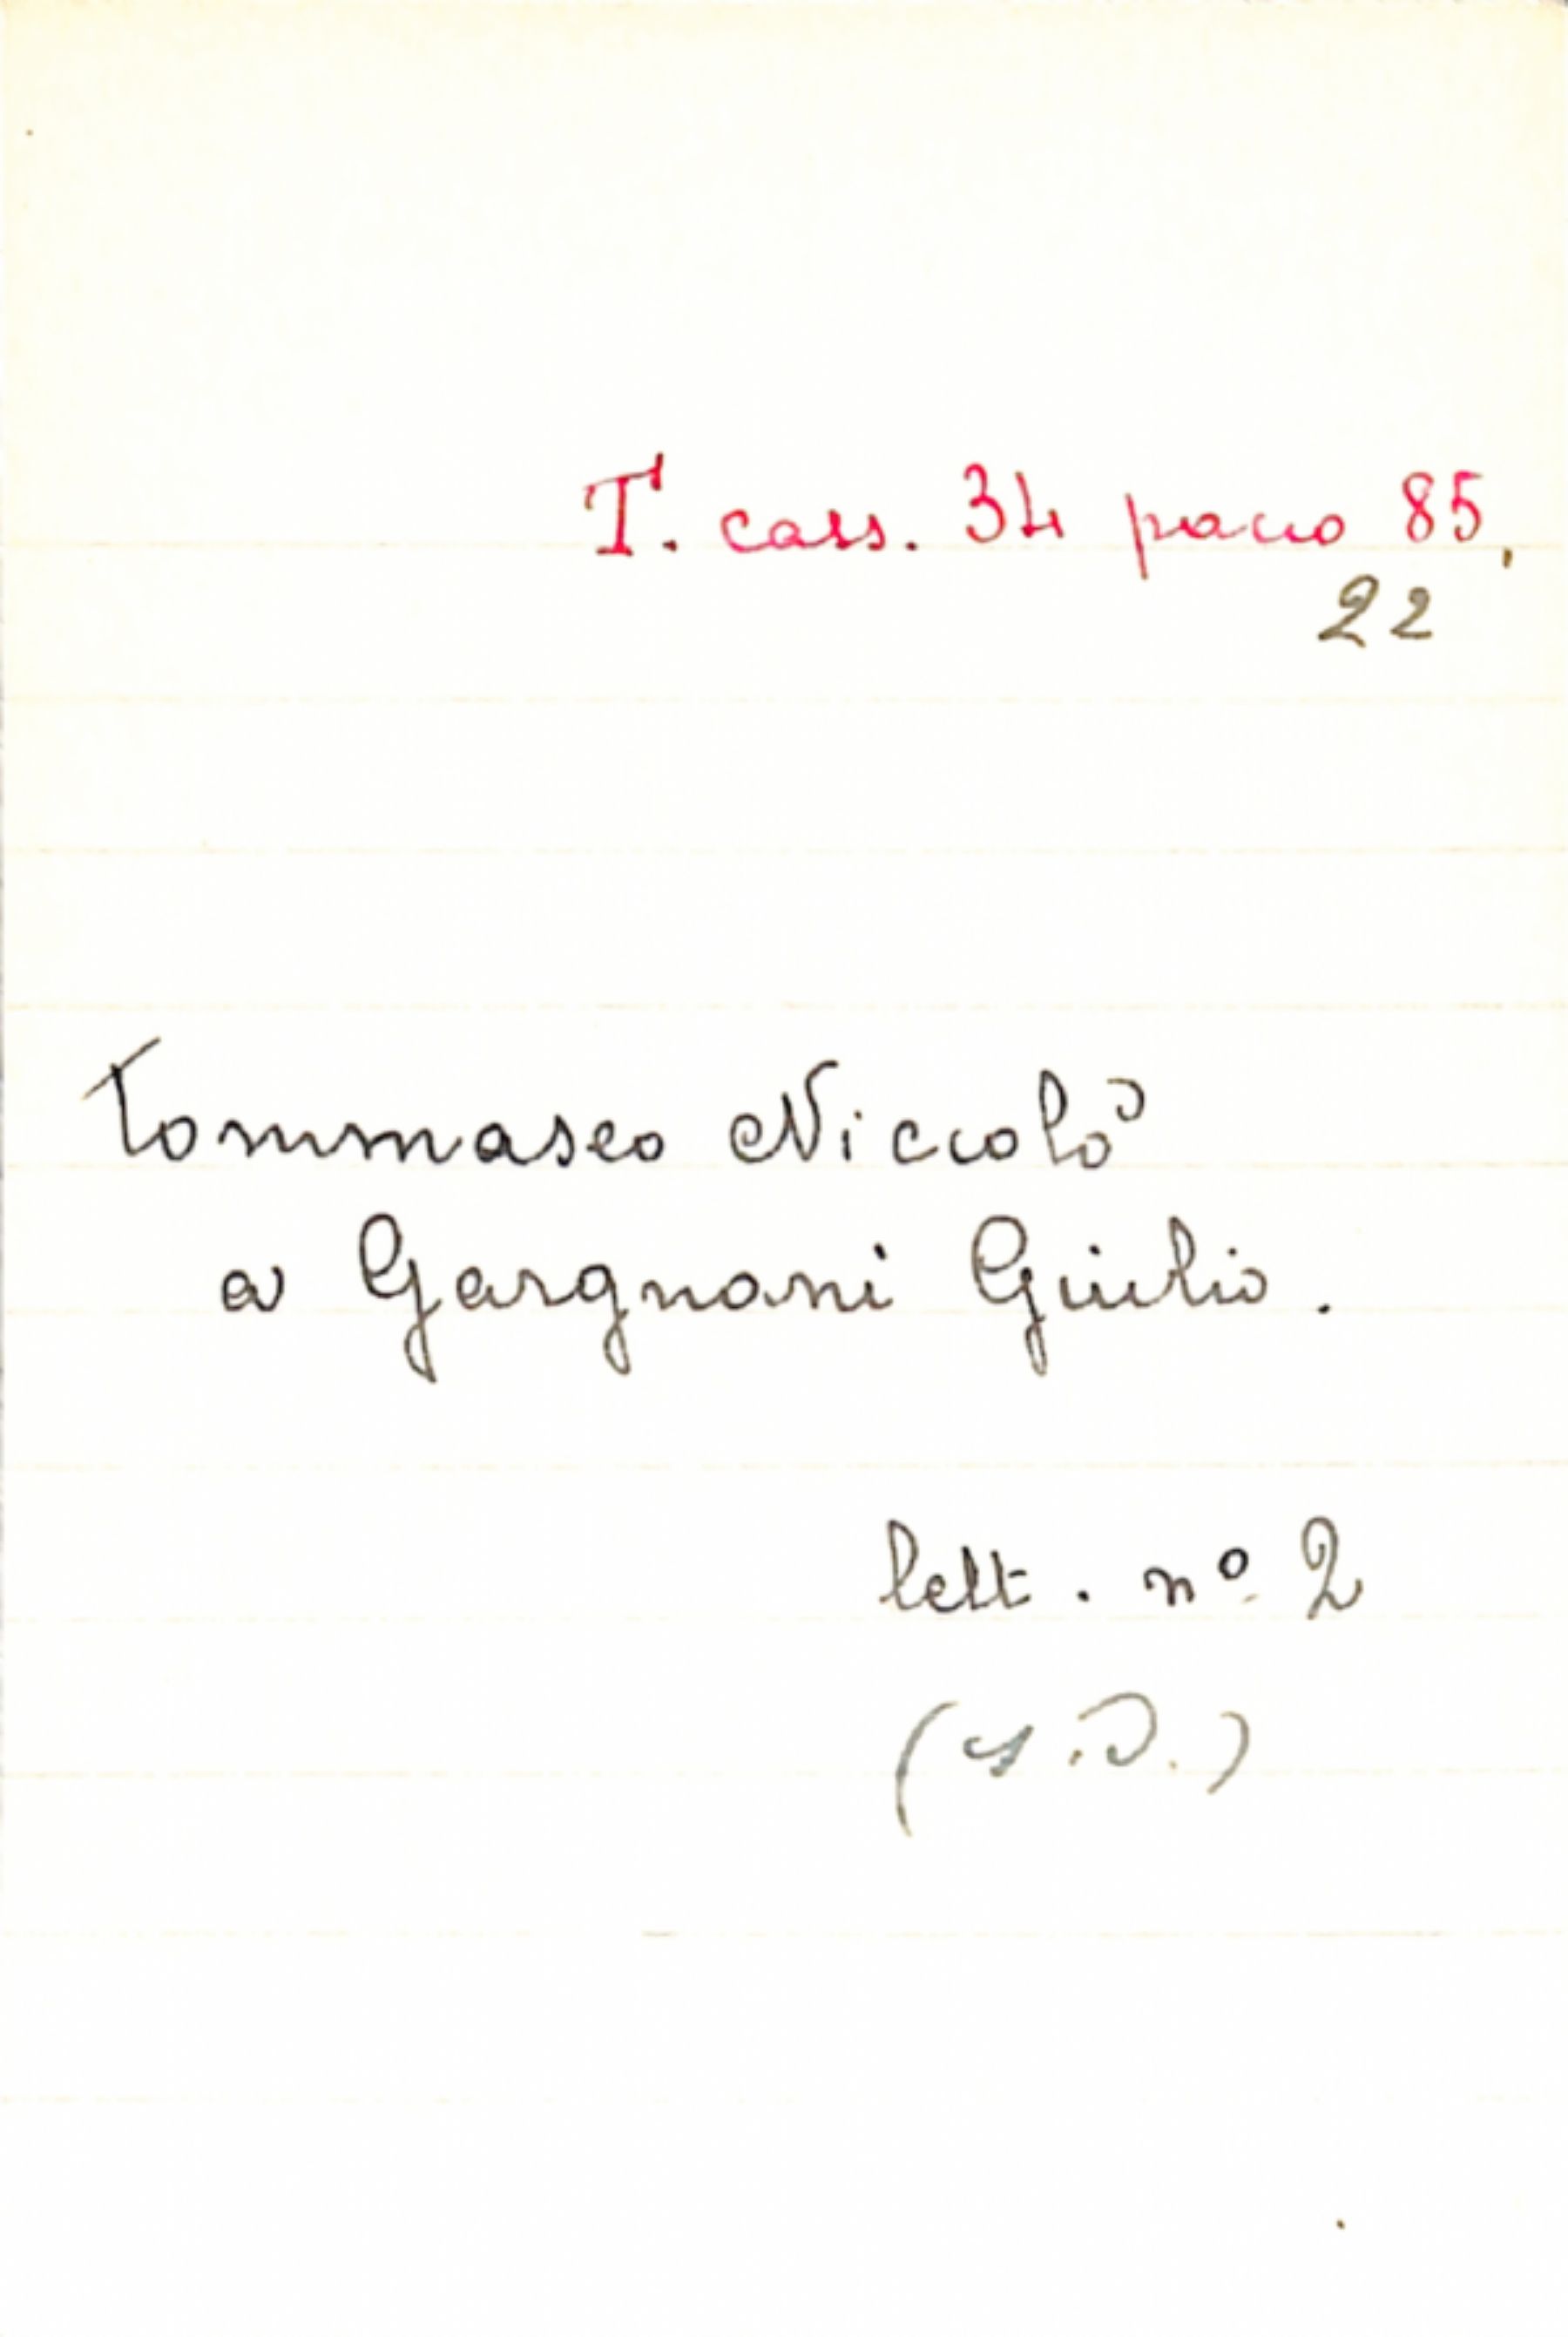 T. cass. 34 pacco 85,
22
Tommaseo Niccolò
a Gargnani Giulio.
lett. nº 2
(s.d.)